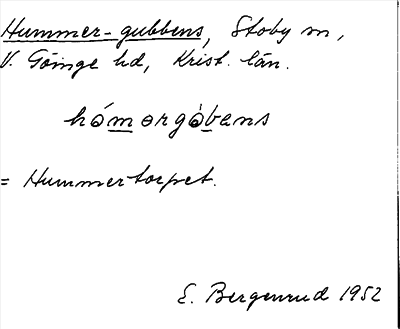 Hummer-gubbens, Stoby sn,
V. Göinge hd, Krist. län.
hómərgòbəns
= Hummertorpet.
E. Bergenrud 1952